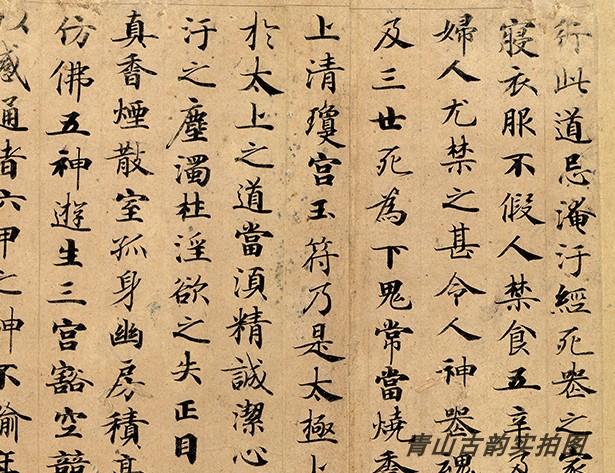 行此道忌淹汙經死喪之家
寢衣服不假人禁食五辛
婦人尤禁之甚令人神喪魂
及三世死為下鬼常當燒香
上清瓊宮玉符乃是太極上
於太上之道當須精誠潔心
汙之塵濁杜淫欲之失正目
真香煙散室孤身幽房積
仿佛五神遊生三宮豁空
以感通者六甲之神不踰
青山古韵实拍图